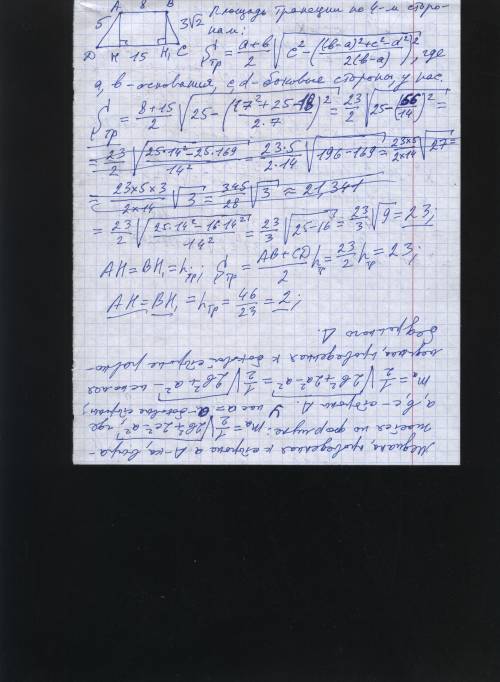 A 8 B
5 3√2
D H 15 H₁ C
Площадь трапеции по 4-м сторо-
нам:
S тр = a+b/2 √(c² - ((b-a)²+c²-d²)/2(b-a))², где
a, b - основания, c, d - боковые стороны, у нас
S тр = 8+15/2 √(25 - (17²+25-18/2·7)²) = 23/2 √(25 - (56/14)²) =
= 23/2 √(25·14²-25·169/14²) = 23·5/2·14 √(196-169) = 23×5/2×14 √27 =
= 23×5×3/2×14 √3 = 345/28 √3 ≈ 21,341
= 23/2 √(25·14²-16·14²/14²) = 23/3 √(25-16) = 23/3 √9 = 23;
AH = BH₁ = h тр, S тр = AB+CD/2 h = 23/2 h = 23;
AH = BH₁ = h тр = 46/23 = 2;
Медиана, проведенная к стороне a Δ-ка, выра-
жается по формуле: mₐ = 1/2 √(2b²+2c²-a²), где
a, b, c - стороны Δ. У нас a = a - боковые стороны,
mₐ = 1/2 √(2b²+2a²-a²) = 1/2 √(2b²+a²) - искомая
медиана, проведенная к боковой стороне равно-
бедренного Δ.